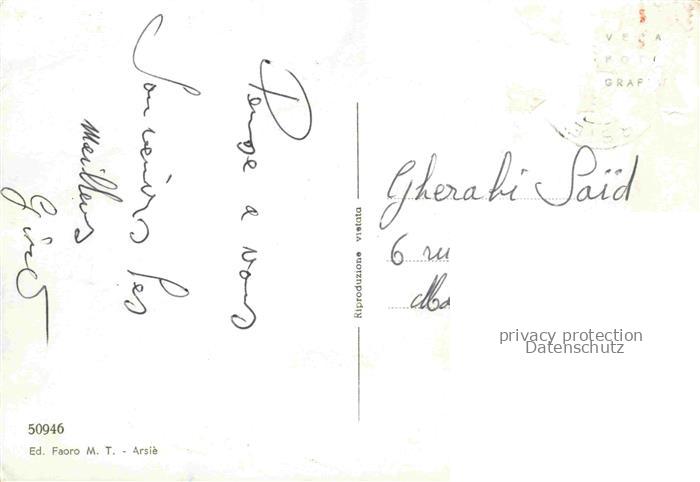 Pense a vous
Souvenirs les
meilleurs
Gherabi Saïd
6 ru
Ma
VERA
FOTO
GRAFIA
Riproduzione vietata
50946
Ed. Faoro M. T. - Arsiè
privacy protection
Datenschutz